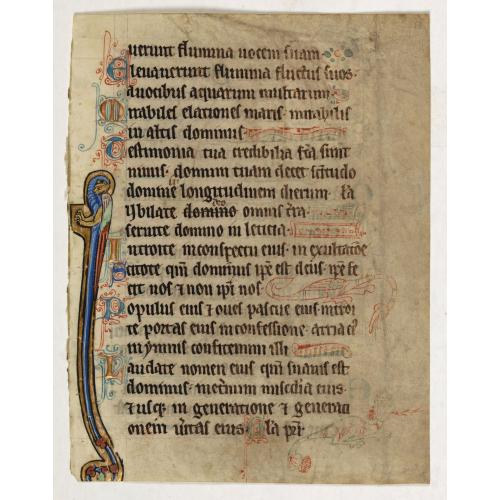 uerunt flumina uocem suam
Eleuauerunt flumina fluctus suos
auocibus aquarum multarum
Mirabiles elationes maris mirabilis
in altis dominus
Testimonia tua credibilia fca sunt
nimis domum tuam decet scitudo
domine longitudinem dierum
Iubilate domino omnis tra
seruite domino in leticia
Introite inconspectu eius in exultatoe
scitote qm dominus ipe est deus ipe fe
cit nos ⁊ non ipi nos
Populus eius ⁊ oues pascue eius introi
te portas eius inconfessione atria ei
in ymnis confitemini illi
Laudate nomen eius qm suauis est
dominus ineternum misedia eius
⁊ usq in generatione ⁊ generati
onem uitas eius